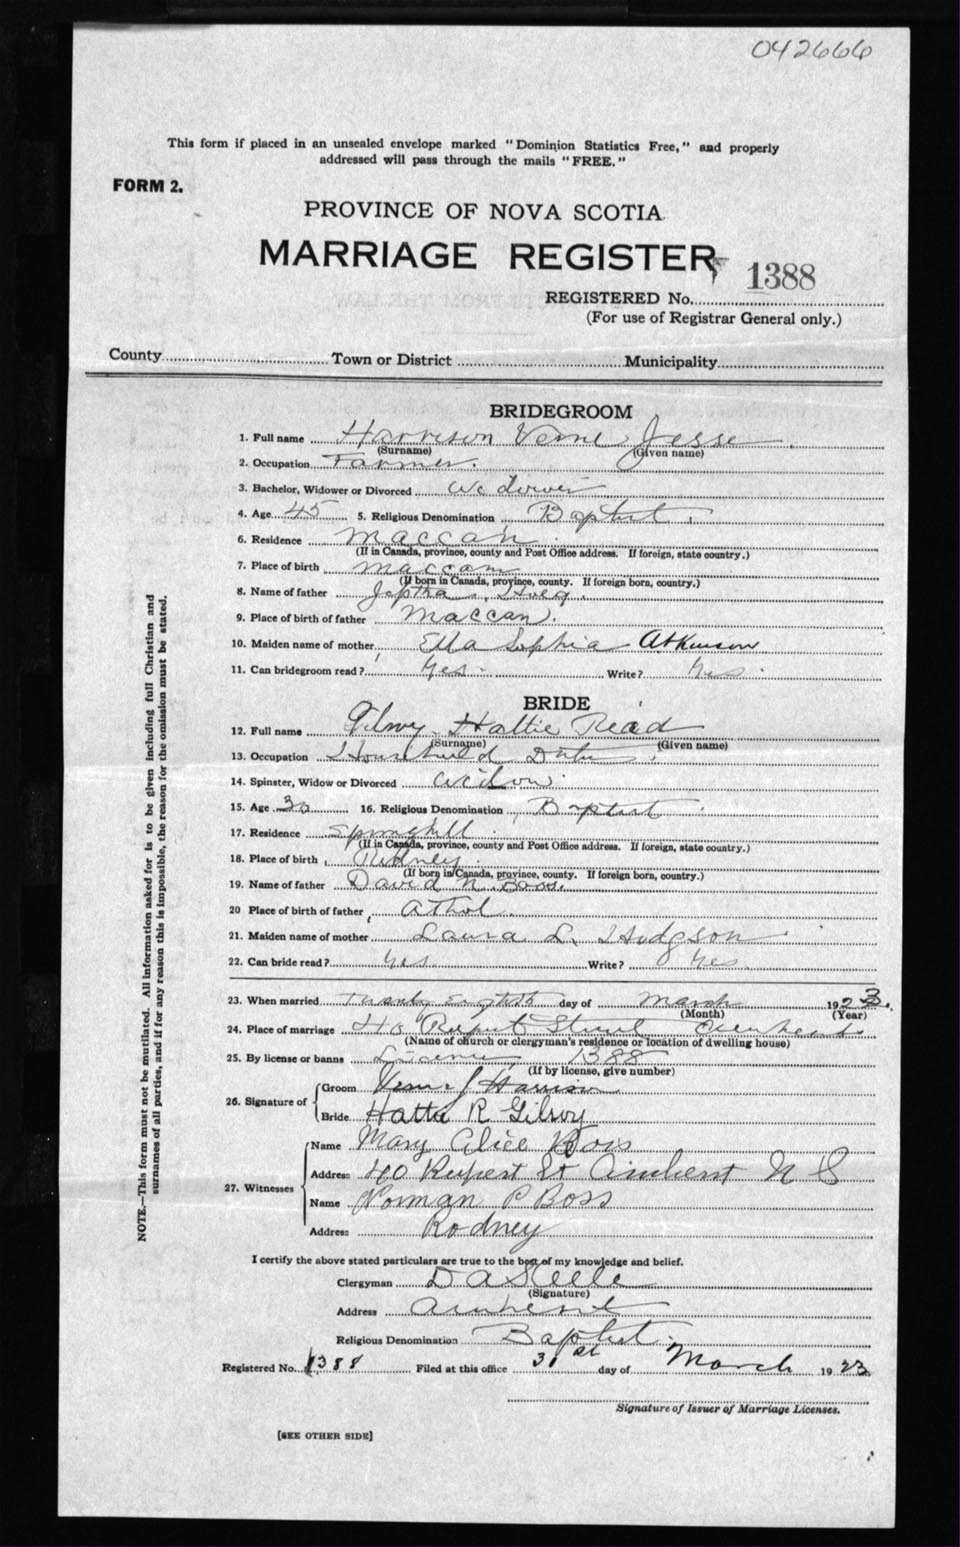 042666
This form if placed in an unsealed envelope marked "Dominion Statistics Free," and properly
addressed will pass through the mails "FREE."
FORM 2.
PROVINCE OF NOVA SCOTIA
MARRIAGE REGISTER
1388
REGISTERED No.
(For use of Registrar General only.)
County Town or District Municipality
BRIDEGROOM
1. Full name Harrison Verne Jesse
(Surname) (Given name)
2. Occupation Farmer.
3. Bachelor, Widower or Divorced Widower
4. Age 45 5. Religious Denomination Baptist
6. Residence Maccan
(If in Canada, province, county and Post Office address. If foreign, state country.)
7. Place of birth Maccan
(If born in Canada, province, county. If foreign born, country.)
8. Name of father Jeptha
9. Place of birth of father Maccan.
10. Maiden name of mother Ella Sophia Atkinson
11. Can bridegroom read? Yes Write? Yes
BRIDE
12. Full name Gilroy Hattie Read
(Surname) (Given name)
13. Occupation Household Duties
14. Spinster, Widow or Divorced Widow.
15. Age 30 16. Religious Denomination Baptist
17. Residence Springhill
(If in Canada, province, county and Post Office address. If foreign, state country.)
18. Place of birth Rodney.
(If born in Canada, province, county. If foreign born, country.)
19. Name of father David N. Boss.
20 Place of birth of father Athol.
21. Maiden name of mother Laura L. Hodgson
22. Can bride read? Yes Write? Yes.
23. When married Twenty Eighth day of March 1923.
(Month) (Year)
24. Place of marriage 40 Rupert Street Amherst
(Name of church or clergyman's residence or location of dwelling house)
25. By license or banns License 1388
(If by license, give number)
26. Signature of
Groom Verne J Harrison
Bride Hattie R Gilroy
27. Witnesses
Name Mary Alice Boss
Address 40 Rupert St Amherst N S
Name Norman P Boss
Address Rodney
I certify the above stated particulars are true to the best of my knowledge and belief.
Clergyman D A Steele
(Signature)
Address Amherst
Religious Denomination Baptist.
Registered No. 1388 Filed at this office 31st day of March 1923
Signature of Issuer of Marriage Licenses.
[SEE OTHER SIDE]
NOTE.—This form must not be mutilated. All information asked for is to be given including full Christian and
surnames of all parties, and if for any reason this is impossible, the reason for the omission must be stated.